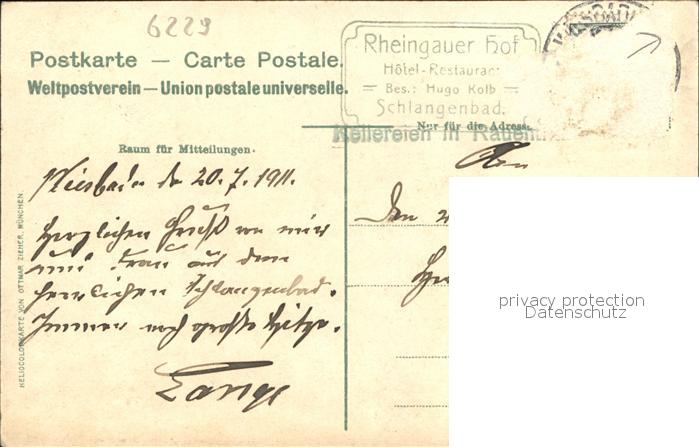 6229
Postkarte — Carte Postale.
Weltpostverein — Union postale universelle.
Rheingauer Hof
Hôtel-Restaurant
= Bes.: Hugo Kolb =
Schlangenbad.
Nur für die Adresse.
Kellereien in
Raum für Mitteilungen.
Wiesbaden de 20.7.1911.
Herzlichen Gruß von mir
und Frau aus dem
herrlichen Schlangenbad.
Immer noch große Hitze.
Lange
An
Den
HELIOCOLORKARTE VON OTTMAR ZIEHER, MÜNCHEN.
privacy protection
Datenschutz